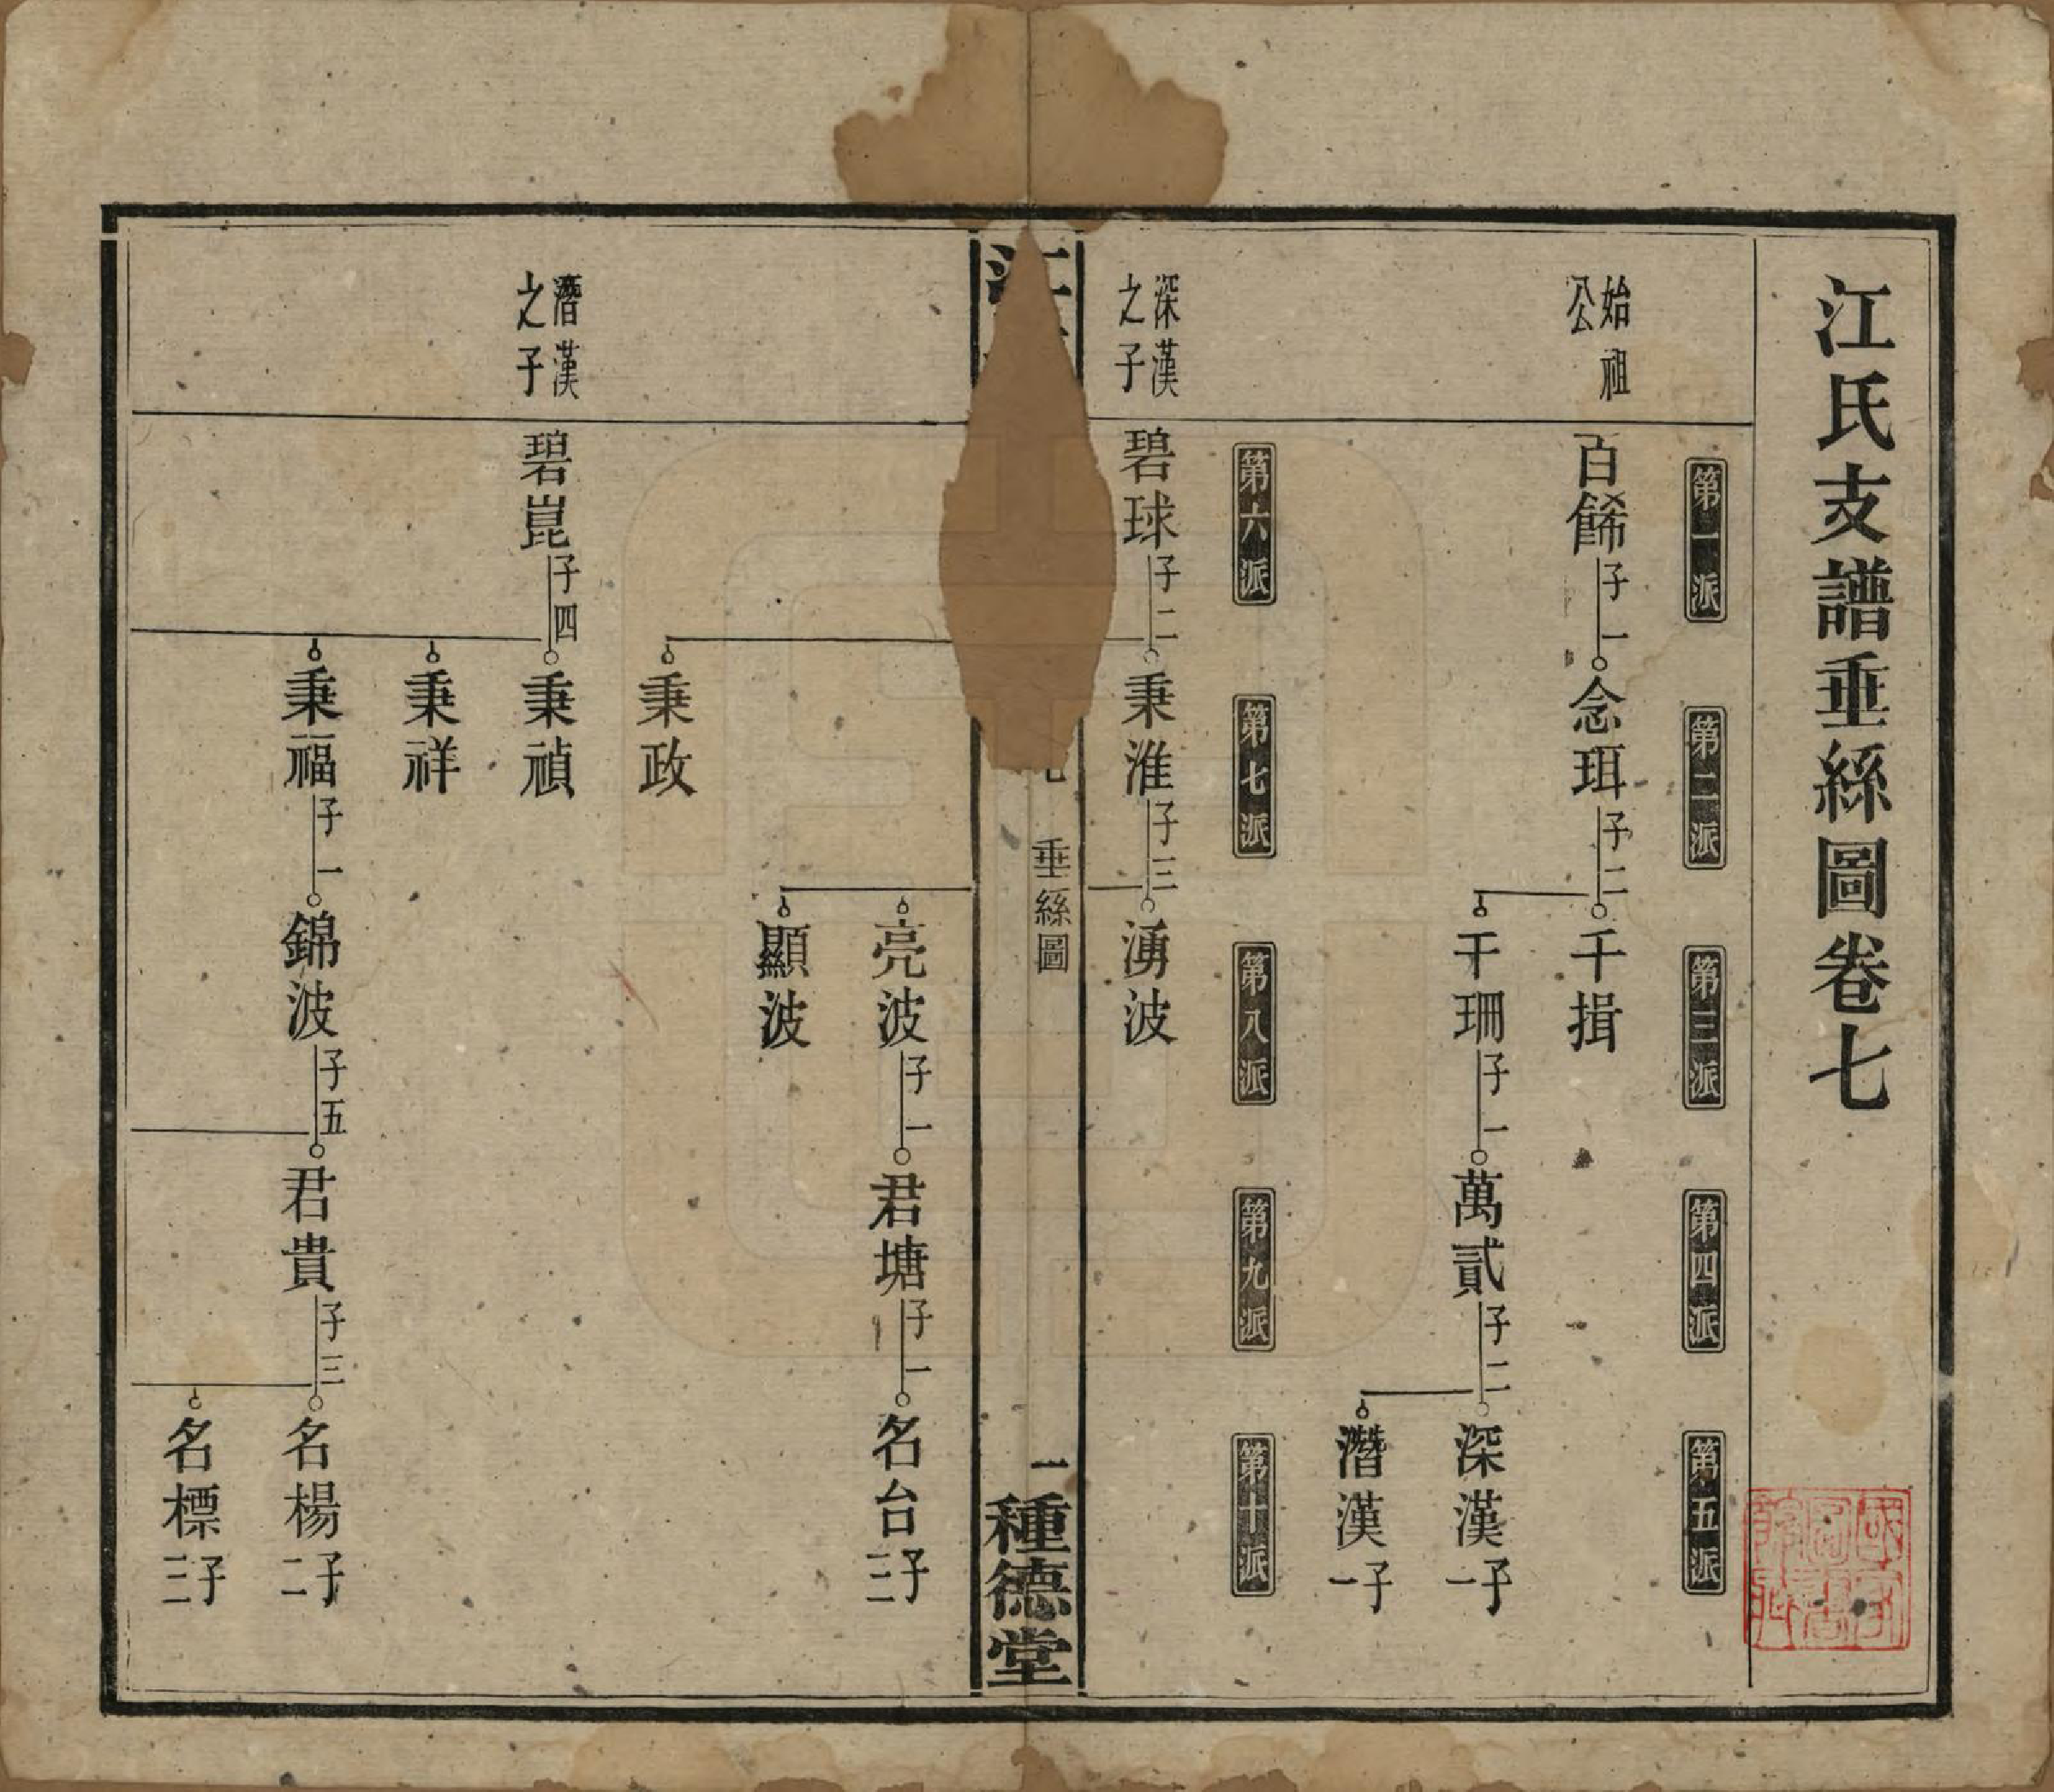 江氏支譜垂絲圖卷七
第一派
第二派
第三派
第四派
第五派
始祖
公
百餙
子一
念珥
子二
千揖
千珊
子一
萬貳
子二
深漢
子一
潛漢
子一
第六派
第七派
第八派
第九派
第十派
深漢
之子
碧球
子二
秉淮
子三
湧波
垂絲圖
一
種德堂
亮波
子一
君塘
子一
名台
子三
顯波
秉政
潛漢
之子
碧崑
子四
秉禎
秉祥
秉福
子一
錦波
子五
君貴
子三
名楊
子二
名標
子三